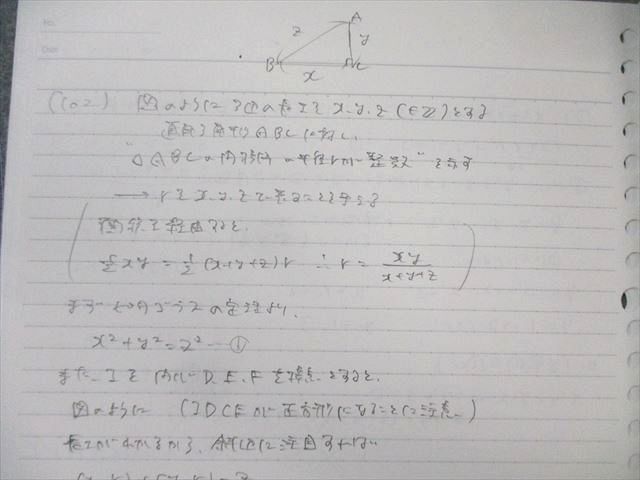 No.
Date
A
z
y
B
x
C
(Co2) 図のように3辺の長さを x, y, z (∈ℤ) とする
直角三角形ABCに対し、
"△ABCの内接円の半径rが整数" を示す
→ rを x, y, z で表すことを考える
面積を経由すると、
½xy = ½(x+y+z)r ∴ r = xy/(x+y+z)
まず ピタゴラスの定理より、
x² + y² = z² ―①
また、Iを内心、D, E, Fを接点とすると、
図のように (IDCEが正方形になることに注意)
長さがわかるから、斜辺に注目すれば